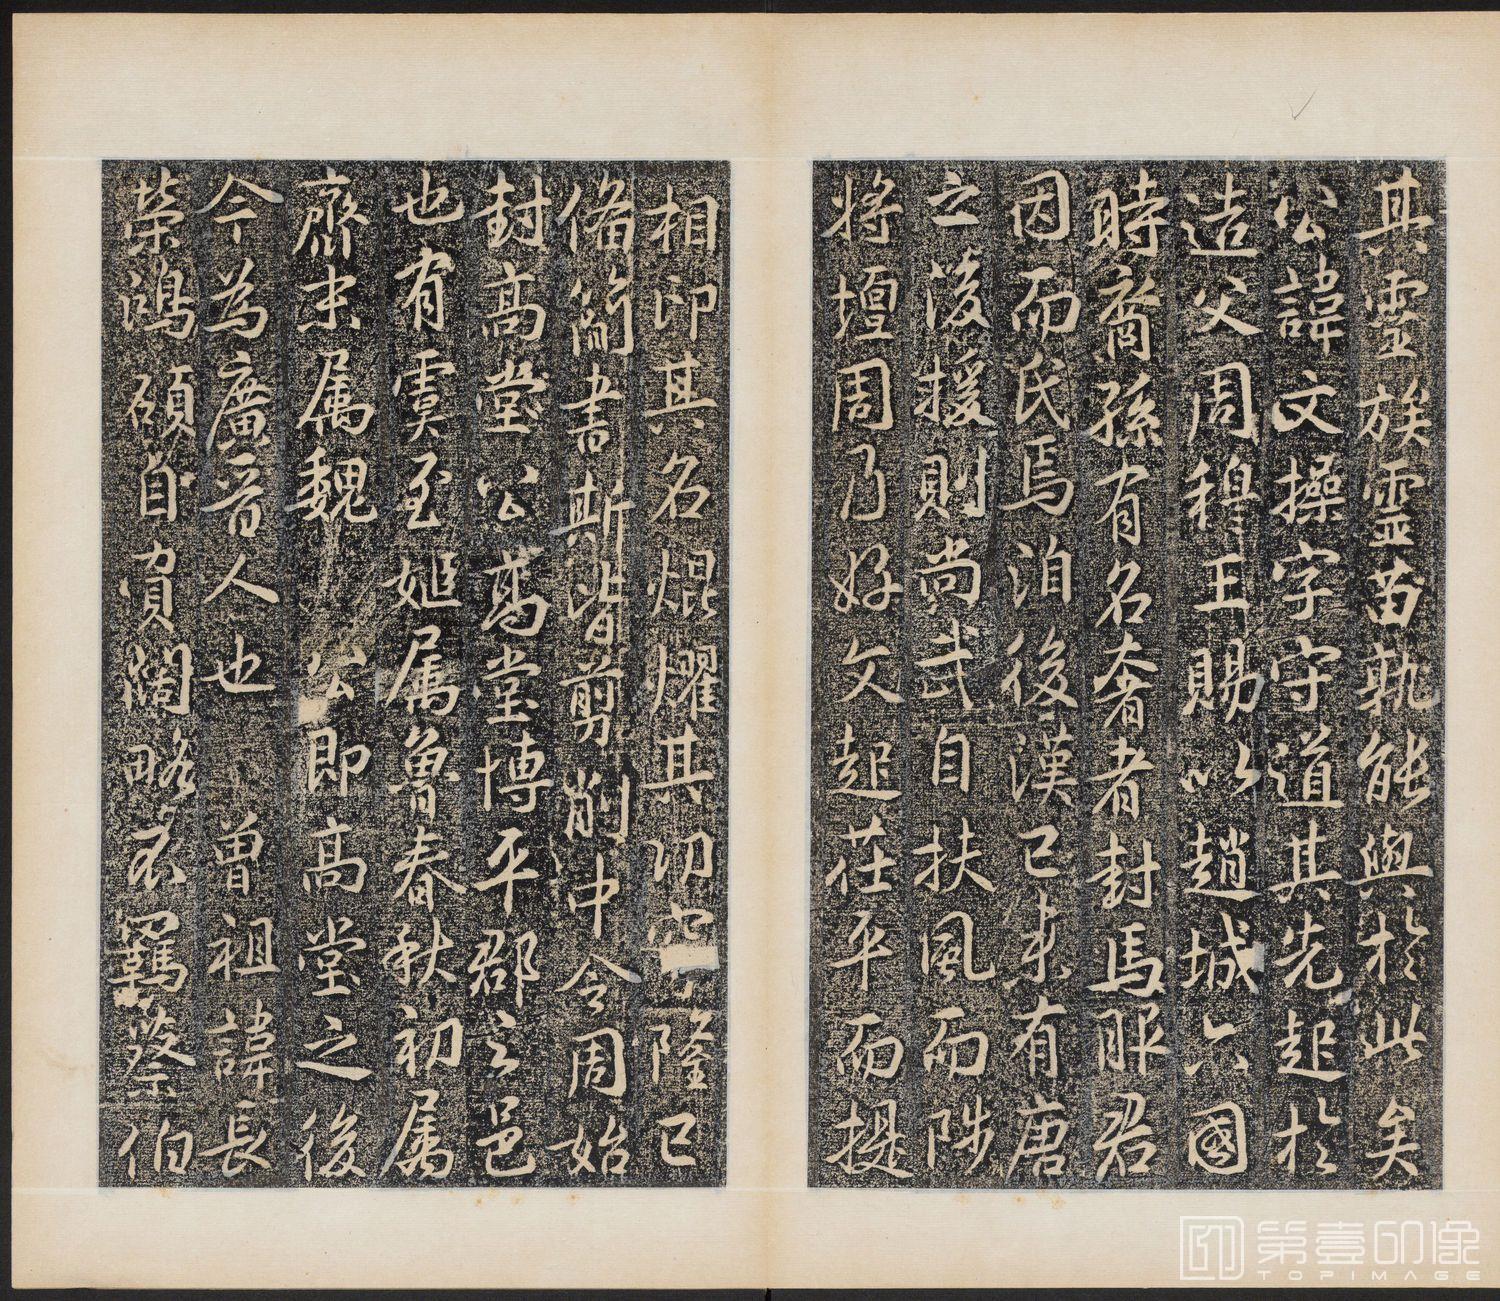 其靈族靈苗孰能與於此矣
公諱文操字守道其先起於
造父周穆王賜以趙城六國
時裔孫有名奢者封馬服君
因而氏焉洎後漢已來有唐
之後援則尚武自扶風而陟
將壇周乃好文起茌平而提
相印其名焜燿其功穹隆已
俻簡書斯皆剪削中令周始
封高堂公高堂博平郡之邑
也有虞至姬属魯春秋初属
齊末属魏 公即高堂之後
今為廣晋人也 曽祖諱長
榮鴻碩自負闊略不羈蔡伯
第壹印像
TOPIMAGE